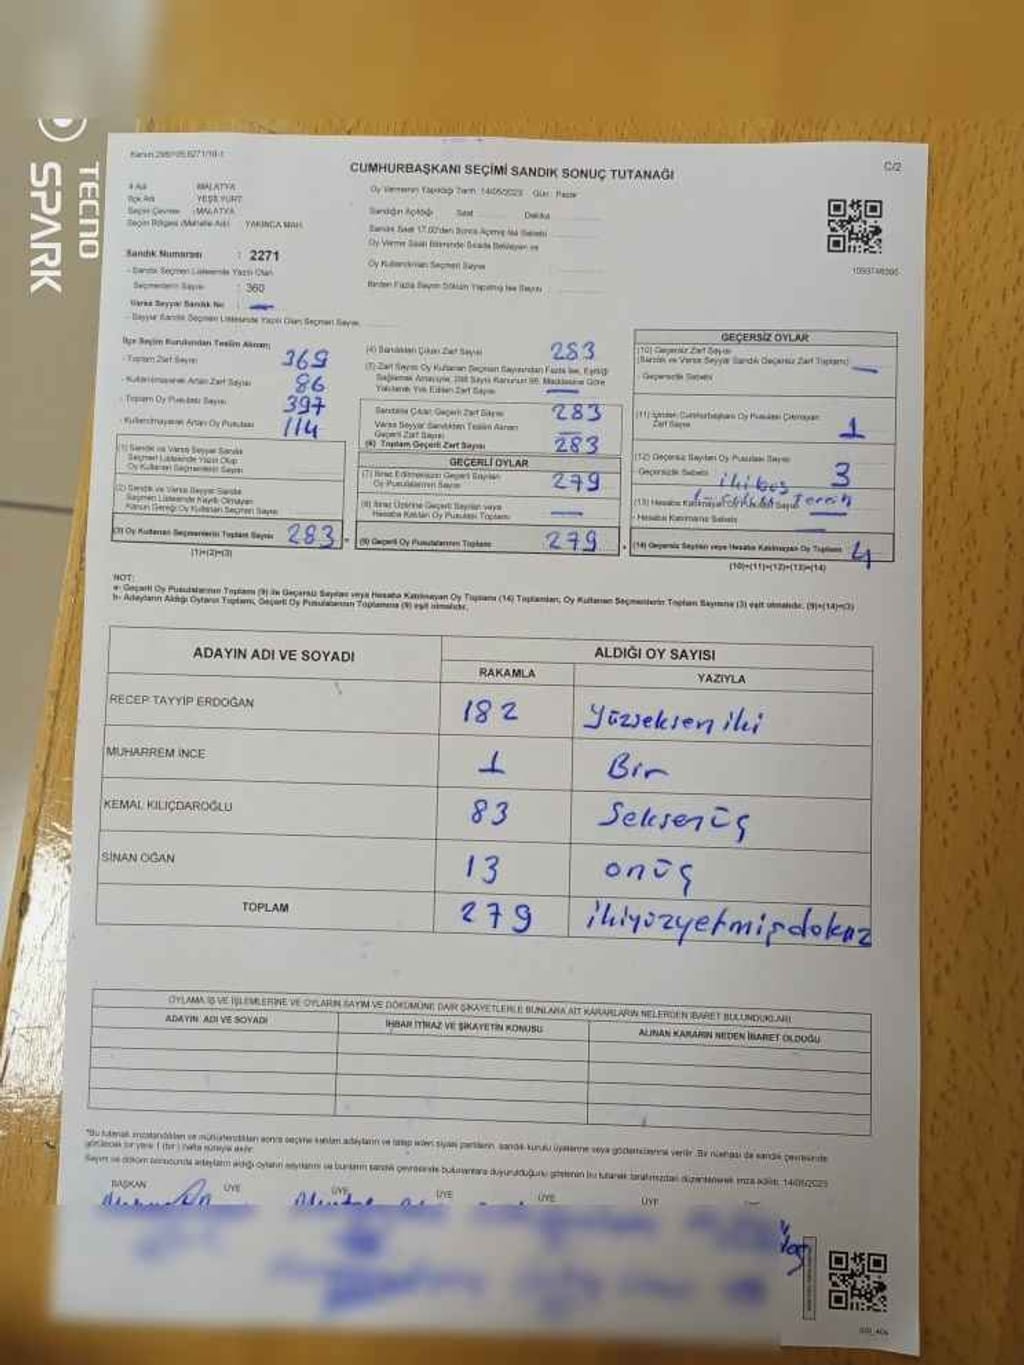 TECNO
SPARK
Kanun:298/105,6271/18-1
C/2
CUMHURBAŞKANI SEÇİMİ SANDIK SONUÇ TUTANAĞI
İl Adı MALATYA
İlçe Adı YEŞİLYURT
Seçim Çevresi :MALATYA
Seçim Bölgesi (Mahalle Adı) YAKINCA MAH.
Sandık Numarası : 2271
- Sandık Seçmen Listesinde Yazılı Olan
Seçmenlerin Sayısı : 360
Varsa Seyyar Sandık No :
- Seyyar Sandık Seçmen Listesinde Yazılı Olan Seçmen Sayısı
Oy Vermenin Yapıldığı Tarih 14/05/2023 Gün: Pazar
Sandığın Açıldığı Saat Dakika
Sandık Saat 17.00'den Sonra Açılmış İse Sebebi
Oy Verme Saati Bitiminde Sırada Bekleyen ve
Oy Kullandırılan Seçmen Sayısı
Birden Fazla Sayım Döküm Yapılmış İse Sayısı
İlçe Seçim Kurulundan Teslim Alınan;
- Toplam Zarf Sayısı 369
- Kullanılmayarak Artan Zarf Sayısı 86
- Toplam Oy Pusulası Sayısı 397
- Kullanılmayarak Artan Oy Pusulası 114
(1) Sandık ve Varsa Seyyar Sandık
Seçmen Listesinde Yazılı Olup
Oy Kullanan Seçmenlerin Sayısı
(2) Sandık ve Varsa Seyyar Sandık
Seçmen Listesinde Kayıtlı Olmayan
Kanun Gereği Oy Kullanan Seçmen Sayısı
(3) Oy Kullanan Seçmenlerin Toplam Sayısı 283
(1)+(2)=(3)
(4) Sandıktan Çıkan Zarf Sayısı 283
(5) Zarf Sayısı Oy Kullanan Seçmen Sayısından Fazla İse, Eşitliği
Sağlamak Amacıyla, 298 Sayılı Kanunun 98. Maddesine Göre
Yakılarak Yok Edilen Zarf Sayısı
Sandıkta Çıkan Geçerli Zarf Sayısı 283
Varsa Seyyar Sandıktan Teslim Alınan
Geçerli Zarf Sayısı
(6) Toplam Geçerli Zarf Sayısı 283
GEÇERLİ OYLAR
(7) İtiraz Edilmeksizin Geçerli Sayılan
Oy Pusulalarının Sayısı 279
(8) İtiraz Üzerine Geçerli Sayılan veya
Hesaba Katılan Oy Pusulası Toplamı
(9) Geçerli Oy Pusulalarının Toplamı 279
1093746366
GEÇERSİZ OYLAR
(10) Geçersiz Zarf Sayısı
(Sandık ve Varsa Seyyar Sandık Geçersiz Zarf Toplamı)
- Geçersizlik Sebebi
(11) İçinden Cumhurbaşkanı Oy Pusulası Çıkmayan
Zarf Sayısı 1
(12) Geçersiz Sayılan Oy Pusulası Sayısı 3
Geçersizlik Sebebi iki boş
(13) Hesaba Katılmayan Oy Pusulası Sayısı
- Hesaba Katılmama Sebebi
(14) Geçersiz Sayılan veya Hesaba Katılmayan Oy Toplamı 4
(10)+(11)+(12)+(13)=(14)
NOT:
a- Geçerli Oy Pusulalarının Toplamı (9) ile Geçersiz Sayılan veya Hesaba Katılmayan Oy Toplamı (14) Toplamları, Oy Kullanan Seçmenlerin Toplam Sayısına (3) eşit olmalıdır. (9)+(14)=(3)
b- Adayların Aldığı Oyların Toplamı, Geçerli Oy Pusulalarının Toplamına (9) eşit olmalıdır.
ADAYIN ADI VE SOYADI
ALDIĞI OY SAYISI
RAKAMLA YAZIYLA
RECEP TAYYİP ERDOĞAN 182 Yüzseksen iki
MUHARREM İNCE 1 Bir
KEMAL KILIÇDAROĞLU 83 Seksenüç
SİNAN OĞAN 13 onüç
TOPLAM 279 ikiyüzyetmişdokuz
OYLAMA İŞ VE İŞLEMLERİNE VE OYLARIN SAYIM VE DÖKÜMÜNE DAİR ŞİKAYETLERLE BUNLARA AİT KARARLARIN NELERDEN İBARET BULUNDUKLARI
ADAYIN ADI VE SOYADI İHBAR İTİRAZ VE ŞİKAYETİN KONUSU ALINAN KARARIN NEDEN İBARET OLDUĞU
*Bu tutanak imzalandıktan ve mühürlendikten sonra seçime katılan adayların ve talep eden siyasi partilerin, sandık kurulu üyelerine veya gözlemcilerine verilir. Bir nüshası da sandık çevresinde
görülecek bir yere 1 (bir) hafta süreyle asılır.
Sayım ve döküm sonucunda adayların aldığı oyların sayılarını ve bunların sandık çevresinde bulunanlara duyurulduğunu gösteren bu tutanak tarafımızdan düzenlenerek imza edildi. 14/05/2023
BAŞKAN ÜYE ÜYE ÜYE ÜYE ÜYE